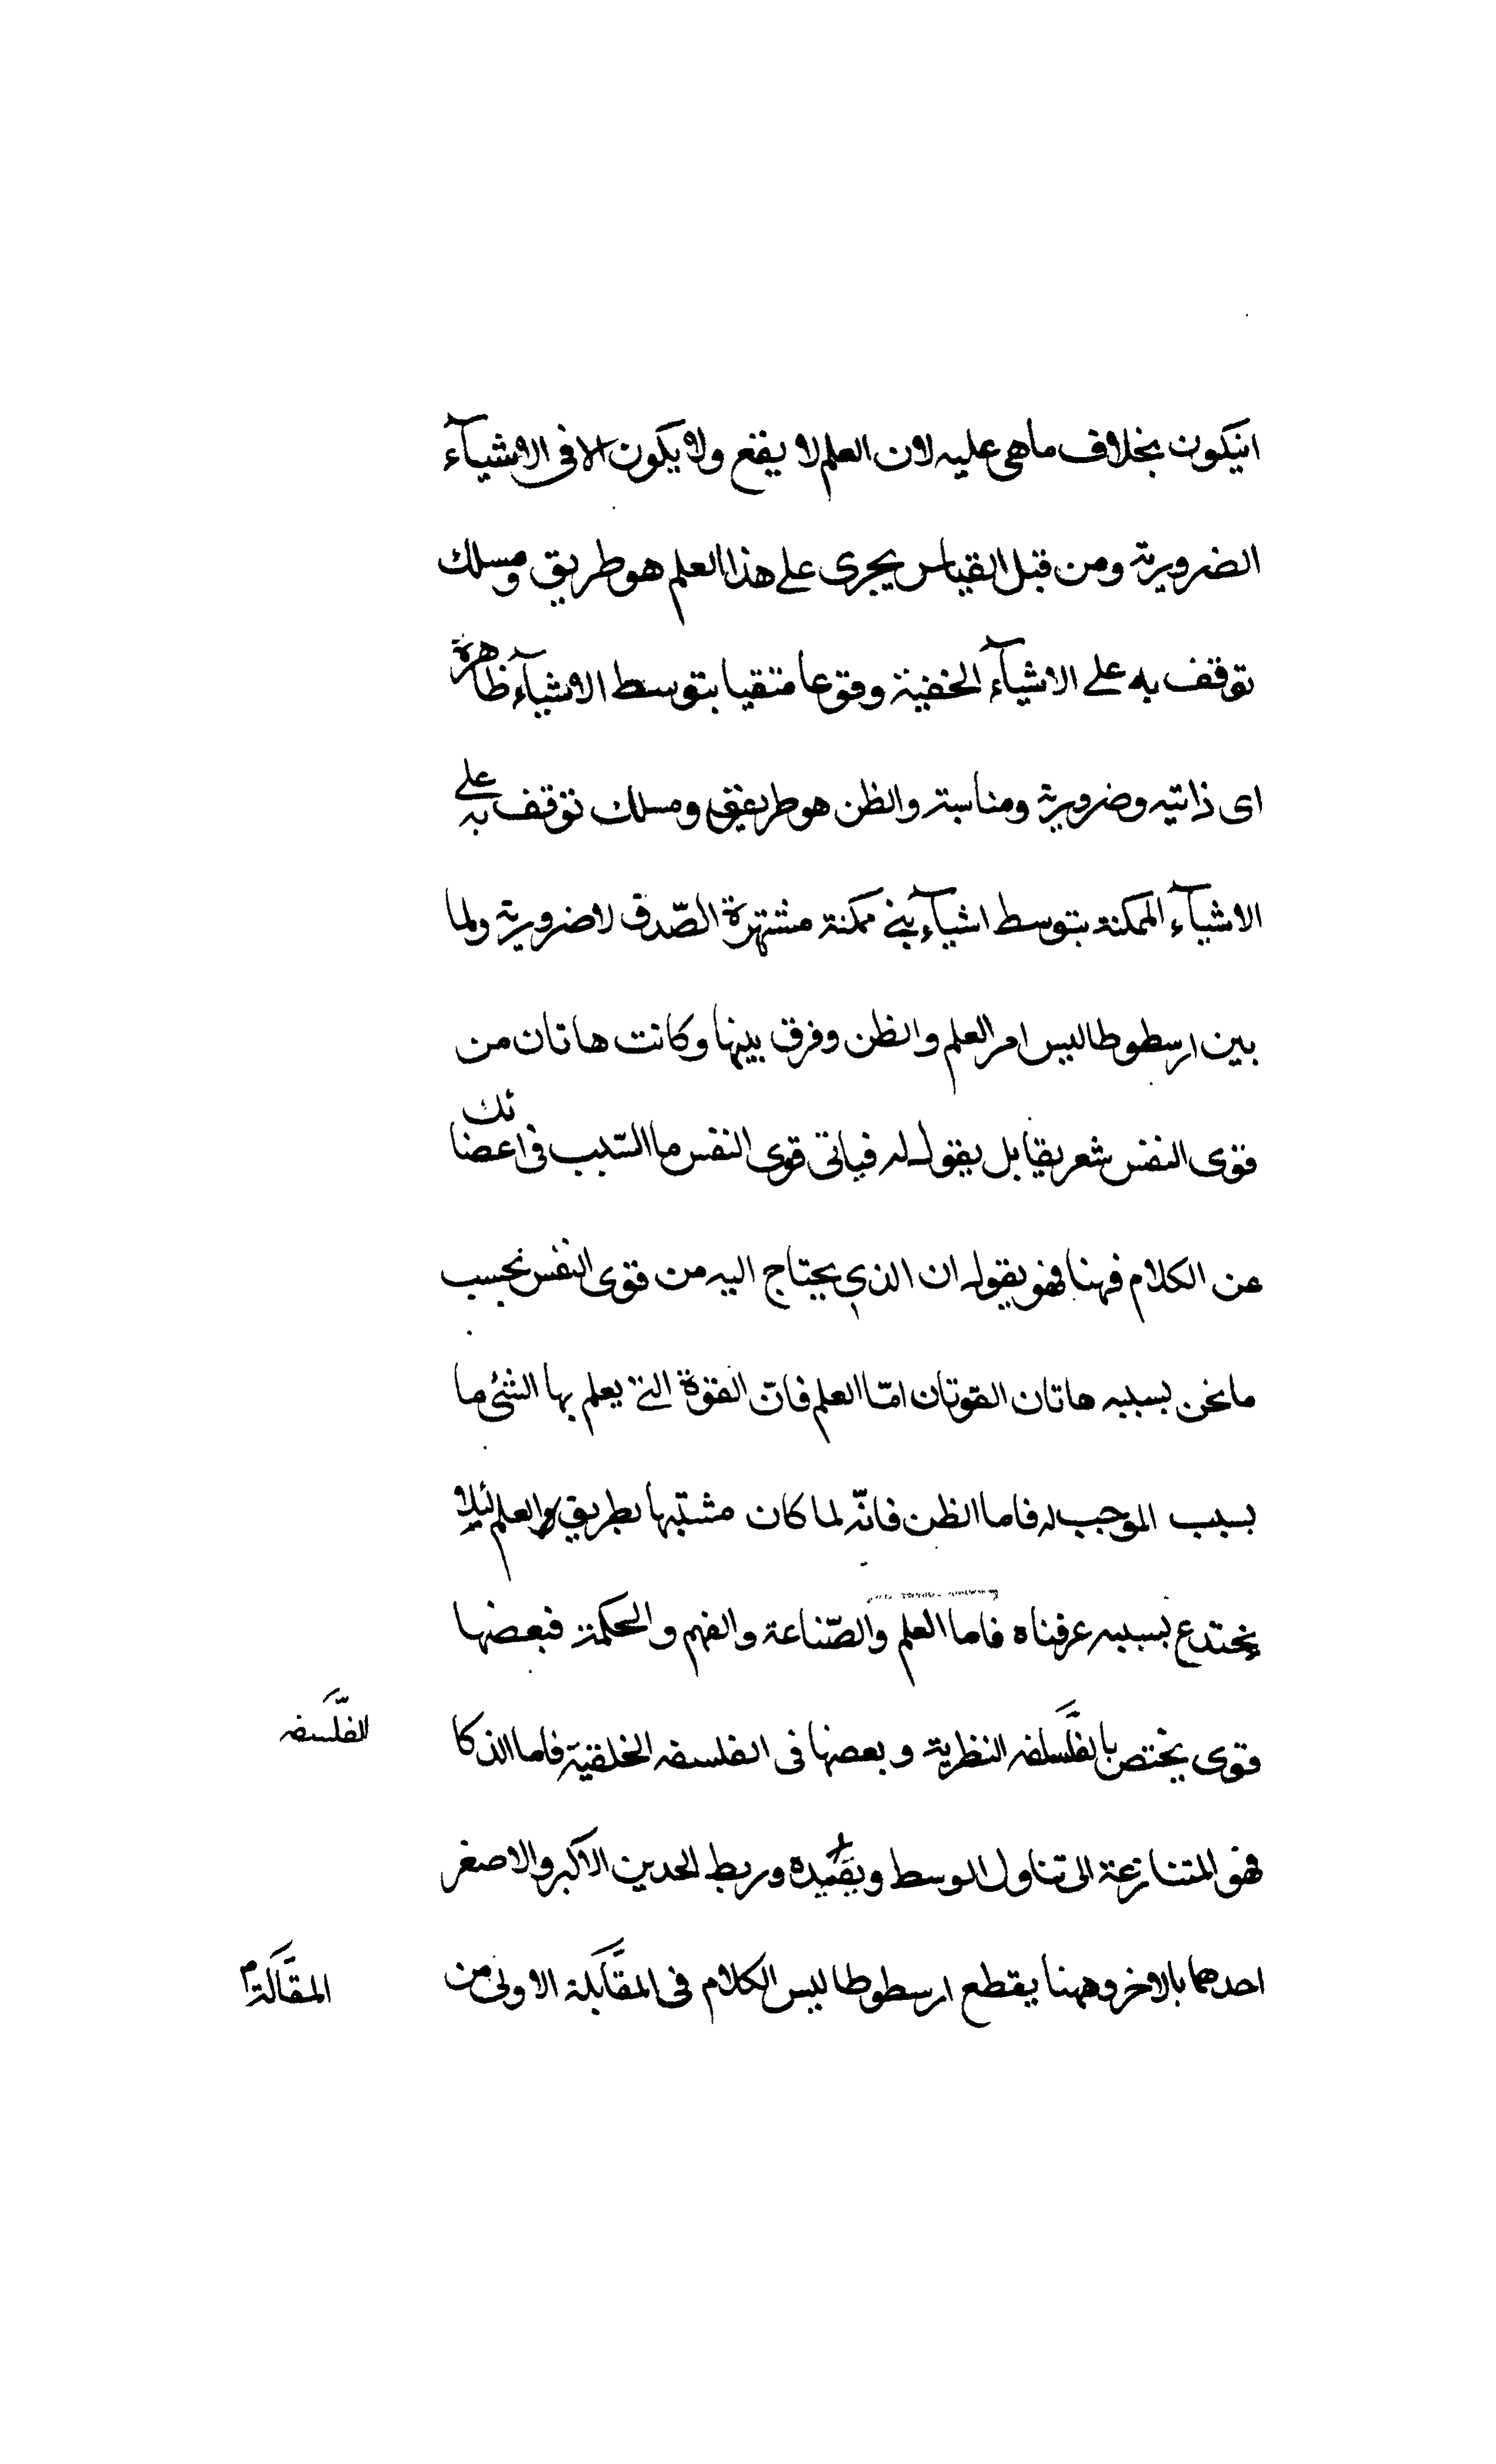 انيكون بخلاف ماهى عليه لان العلم لا يقع ولا يكون الا فى الاشيآء
الضرورية ومن قبل القياس يجرى على هذا العلم هو طريق ومسلك
توقف به على الاشيآء الخفية وقوعا متقيا بتوسط الاشيآء ظاهرة
اى ذاتيه وضرورية ومناسبة والظن هو طريق ومسلك توقف به على
الاشيآء الممكنة بتوسط اشيآء ممكنة مشتهرة الصّدق لا ضرورية ولما
بين ارسطوطاليس امر العلم والظن وفرق بينها وكانت هاتان من
قوى النفس شعر بقابل يقول له فباقى قوى النفس ما السّبب فى اعضائك
عن الكلام فهنا فهو يقول ان الذي يحتاج اليه من قوى النفس بحسب
ما نحن بسببه هاتان القوتان امّا العلم فانّ القوة التى يعلم بها الشئ ما
بسبب الموجب له فاما الظن فانّه لما كان مشتبها بطريق العلم لئلا
يختدع بسببه عرفناه فاما العلم والصّناعة والفهم والحكمة فبعضها
قوى يختص بالفلسلفه النظرية وبعضها فى الفلسفه الخلقية فاما الذكا
الفلسفه
فهو المتنازعة الى تناول الوسط وبقيده وربط الحدين الاكبر والاصغر
احدهما بالاخر وههنا يقطع ارسطوطاليس الكلام فى المقابلة الاولى من
المقالة م